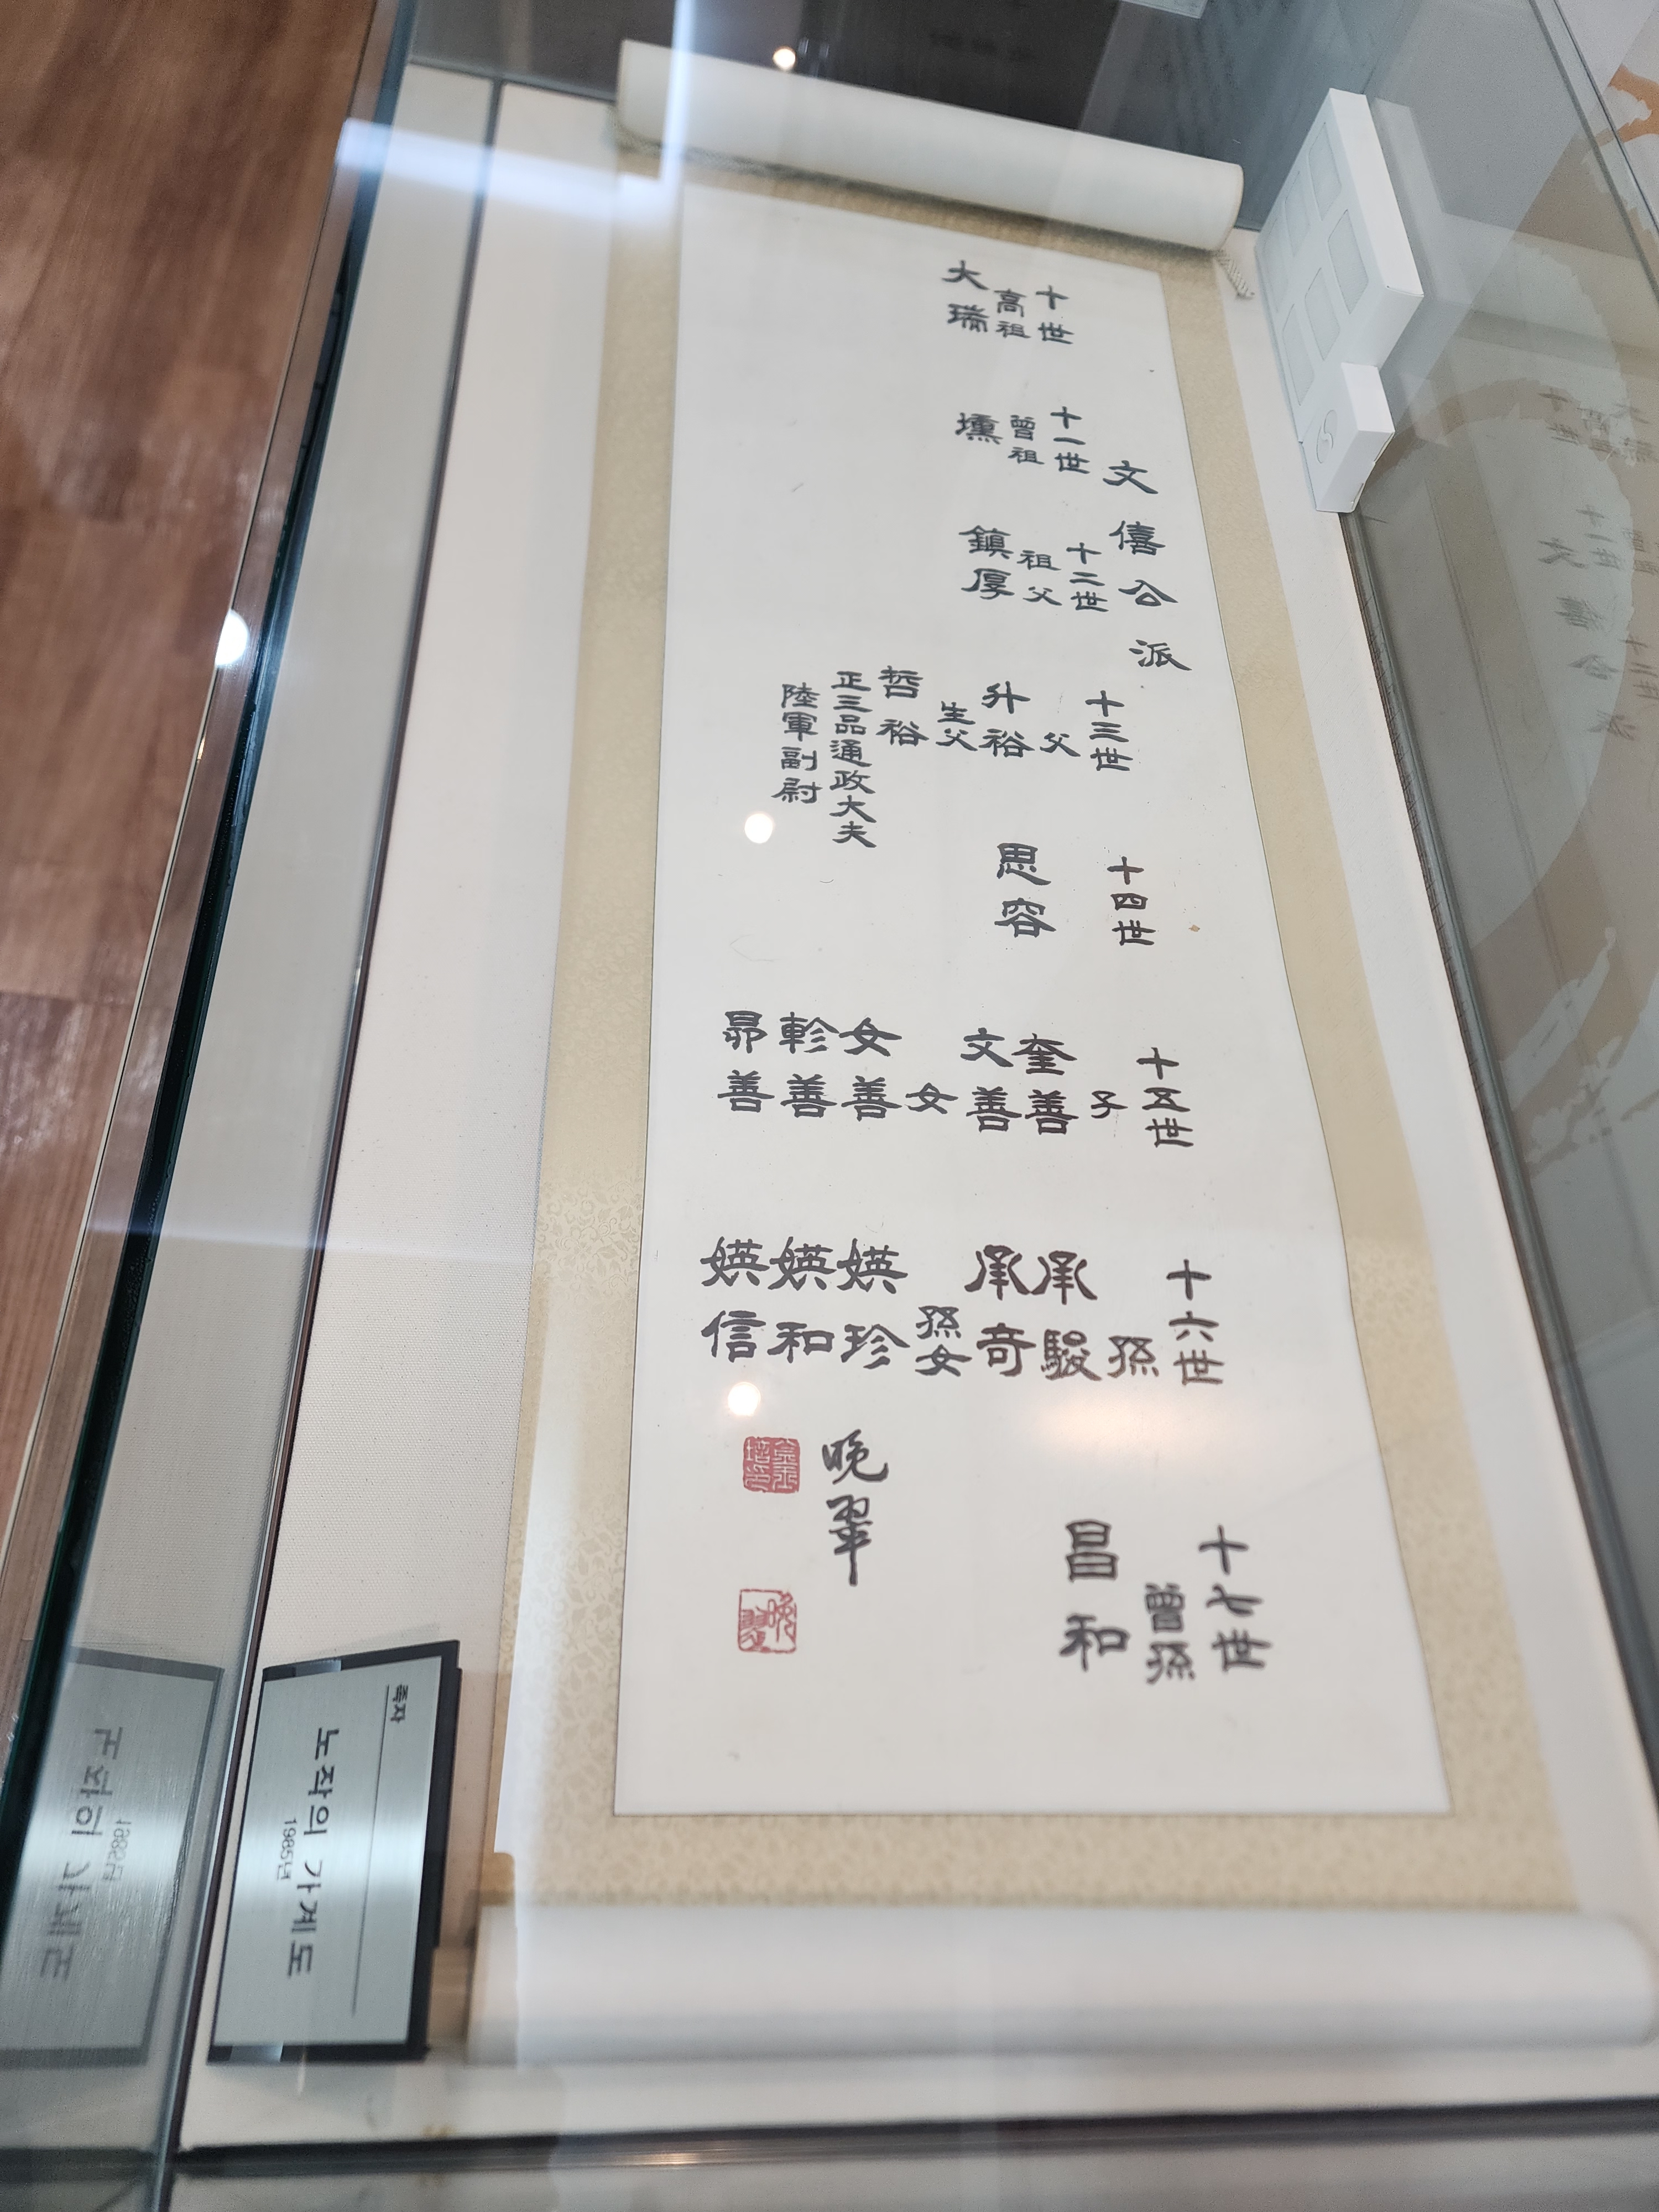 文僖公派
十世
高祖
大瑞
十一世
曾祖
壎
十二世
祖父
鎮厚
十三世
父
升裕
生父
哲裕
正三品通政大夫
陸軍副尉
十四世
思容
十五世
子
奎善
文善
女
女善
軫善
昴善
十六世
孫
承駿
承奇
孫女
媖珍
媖和
媖信
十七世
曾孫
昌和
晚翠
족자
노작의 가계도
1985년